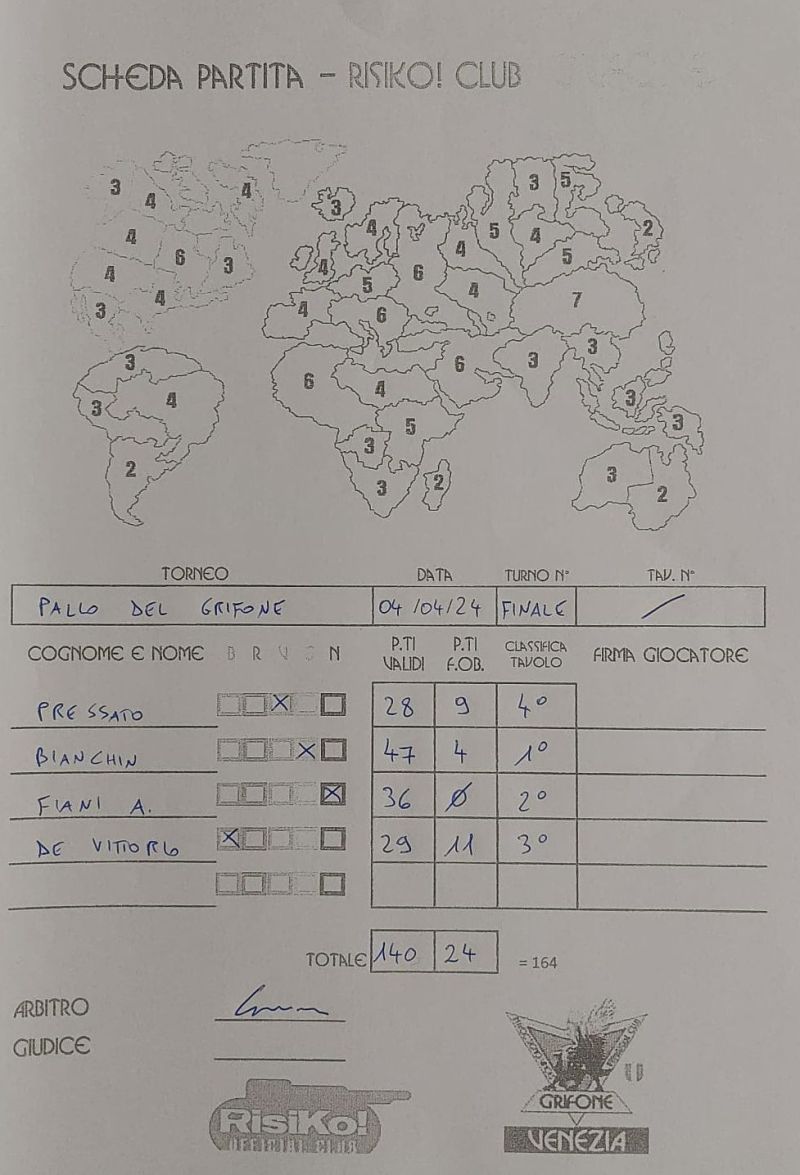 SCHEDA PARTITA – RISIKO! CLUB
3 4 4 3 3 5
4 3 4 5 4 2
4 6 3 4 5 6 4 5
3 4 4 6 4 7
3 6 4 6 3 3
3 4 5 3 3
2 3 3 2 3 2
TORNEO DATA TURNO N° TAV. N°
PALLO DEL GRIFONE 04/04/24 FINALE /
COGNOME E NOME B R V G N P.TI VALIDI P.TI F.OB. CLASSIFICA TAVOLO FIRMA GIOCATORE
PRESSATO X 28 9 4°
BIANCHIN X 47 4 1°
FIANI A. X 36 Ø 2°
DE VITTORIO X 29 11 3°
TOTALE 140 24 = 164
ARBITRO
GIUDICE
RisiKo!
OFFICIAL CLUB
GRIFONE
VENEZIA